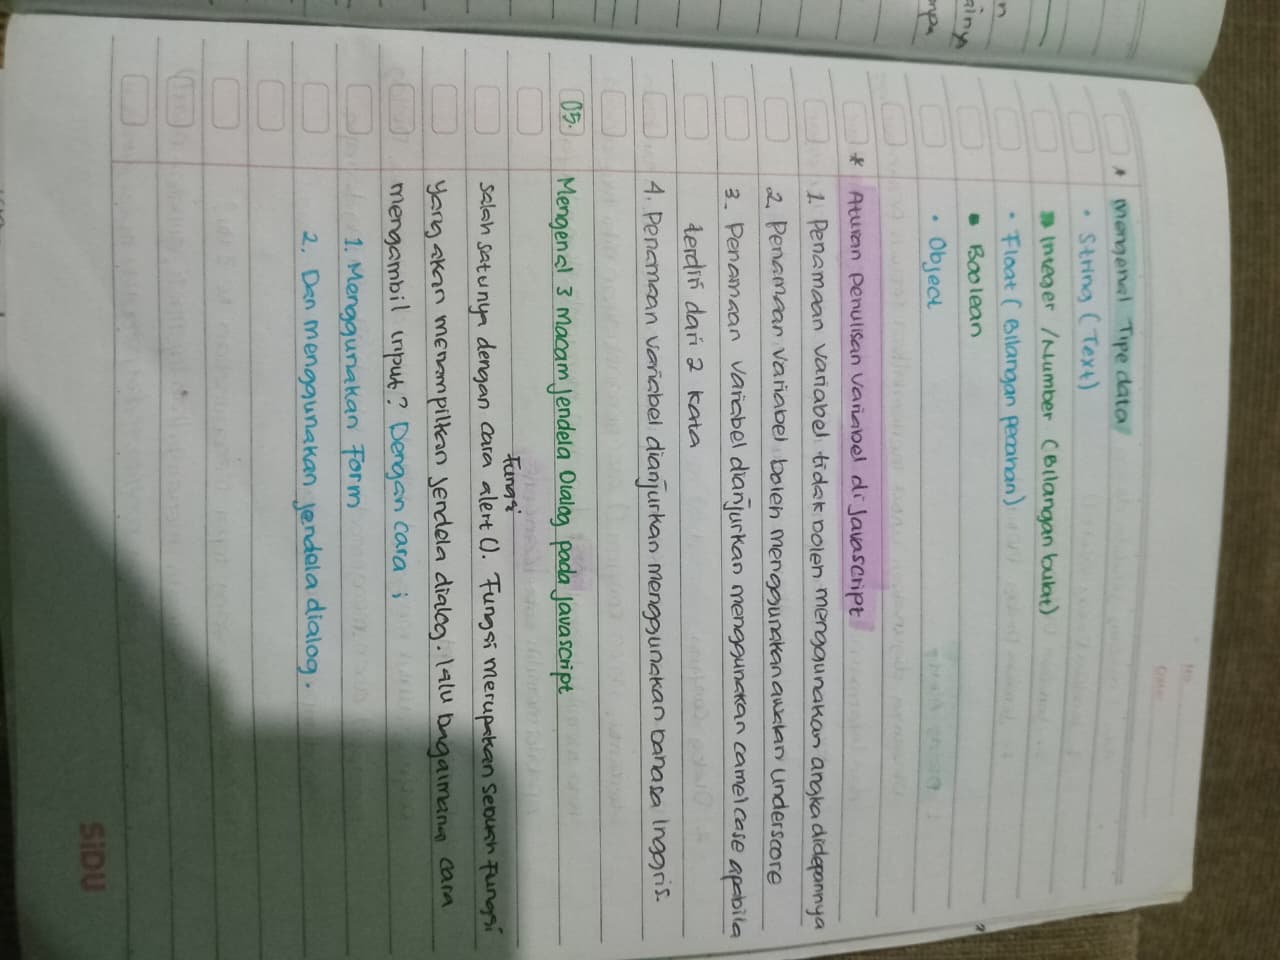 * Mengenal Tipe data
• String (Text)
• Integer /Number (Bilangan bulat)
• Float (Bilangan pecahan)
• Boolean
• Object
* Aturan penulisan variabel di javascript
1. Penamaan variabel tidak boleh menggunakan angka didepannya
2. Penamaan variabel boleh menggunakan awalan underscore
3. Penamaan variabel dianjurkan menggunakan camel case apabila
terdiri dari 2 kata
4. Penamaan variabel dianjurkan menggunakan bahasa Inggris.
05. Mengenal 3 macam jendela Dialog pada javascript
Fungsi
salah satunya dengan cara alert(). Fungsi merupakan sebuah fungsi
yang akan menampilkan jendela dialog. lalu bagaimana cara
mengambil input? Dengan cara :
1. Menggunakan Form
2. Dan menggunakan jendela dialog.
SiDU